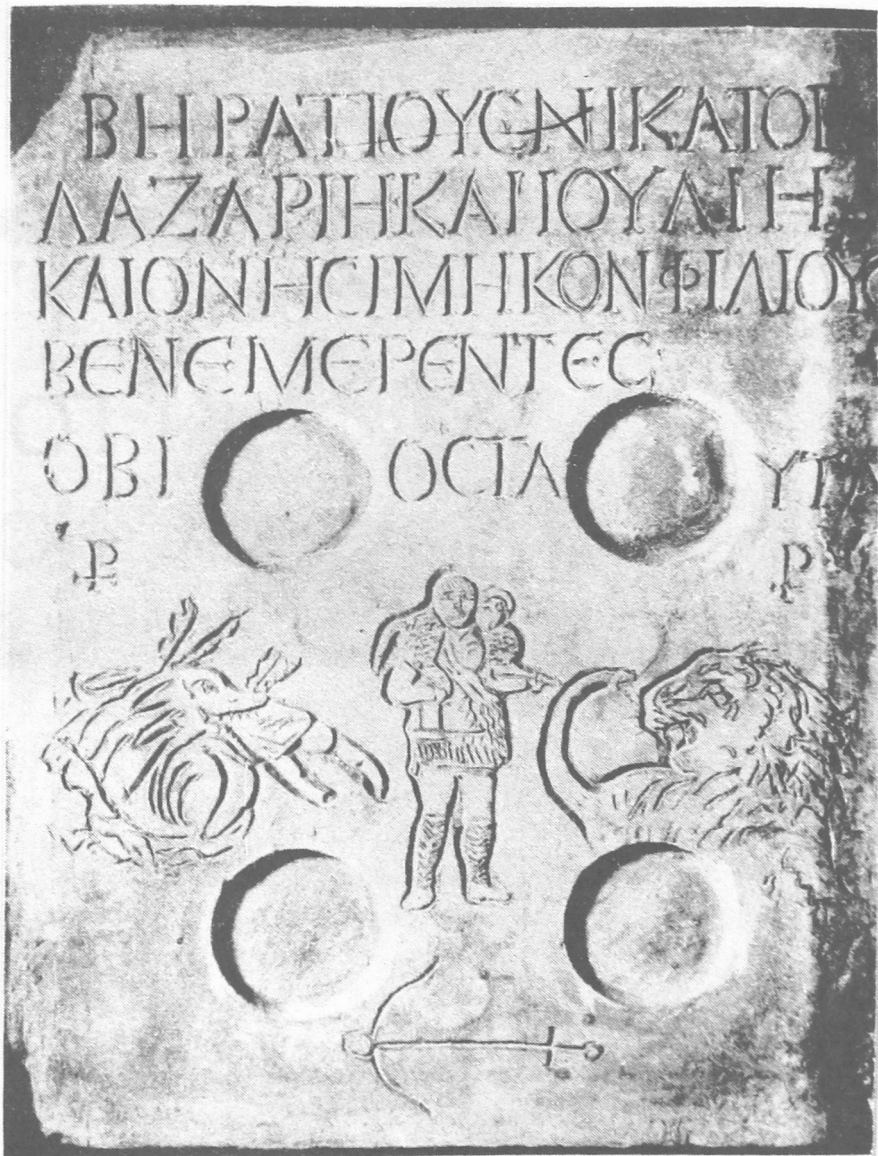 ΒΗΡΑΤΙΟΥϹΝΙΚΑΤΟΡ
ΛΑΖΑΡΙΗΚΑΙΙΟΥΛΙΗ
ΚΑΙΟΝΗϹΙΜΗΚΟΝΦΙΛΙΟΥϹ
ΒΕΝΕΜΕΡΕΝΤΕϹ
ΟΒΙ ΟϹΤΑ ΥΤΑ
⳨ ⳨